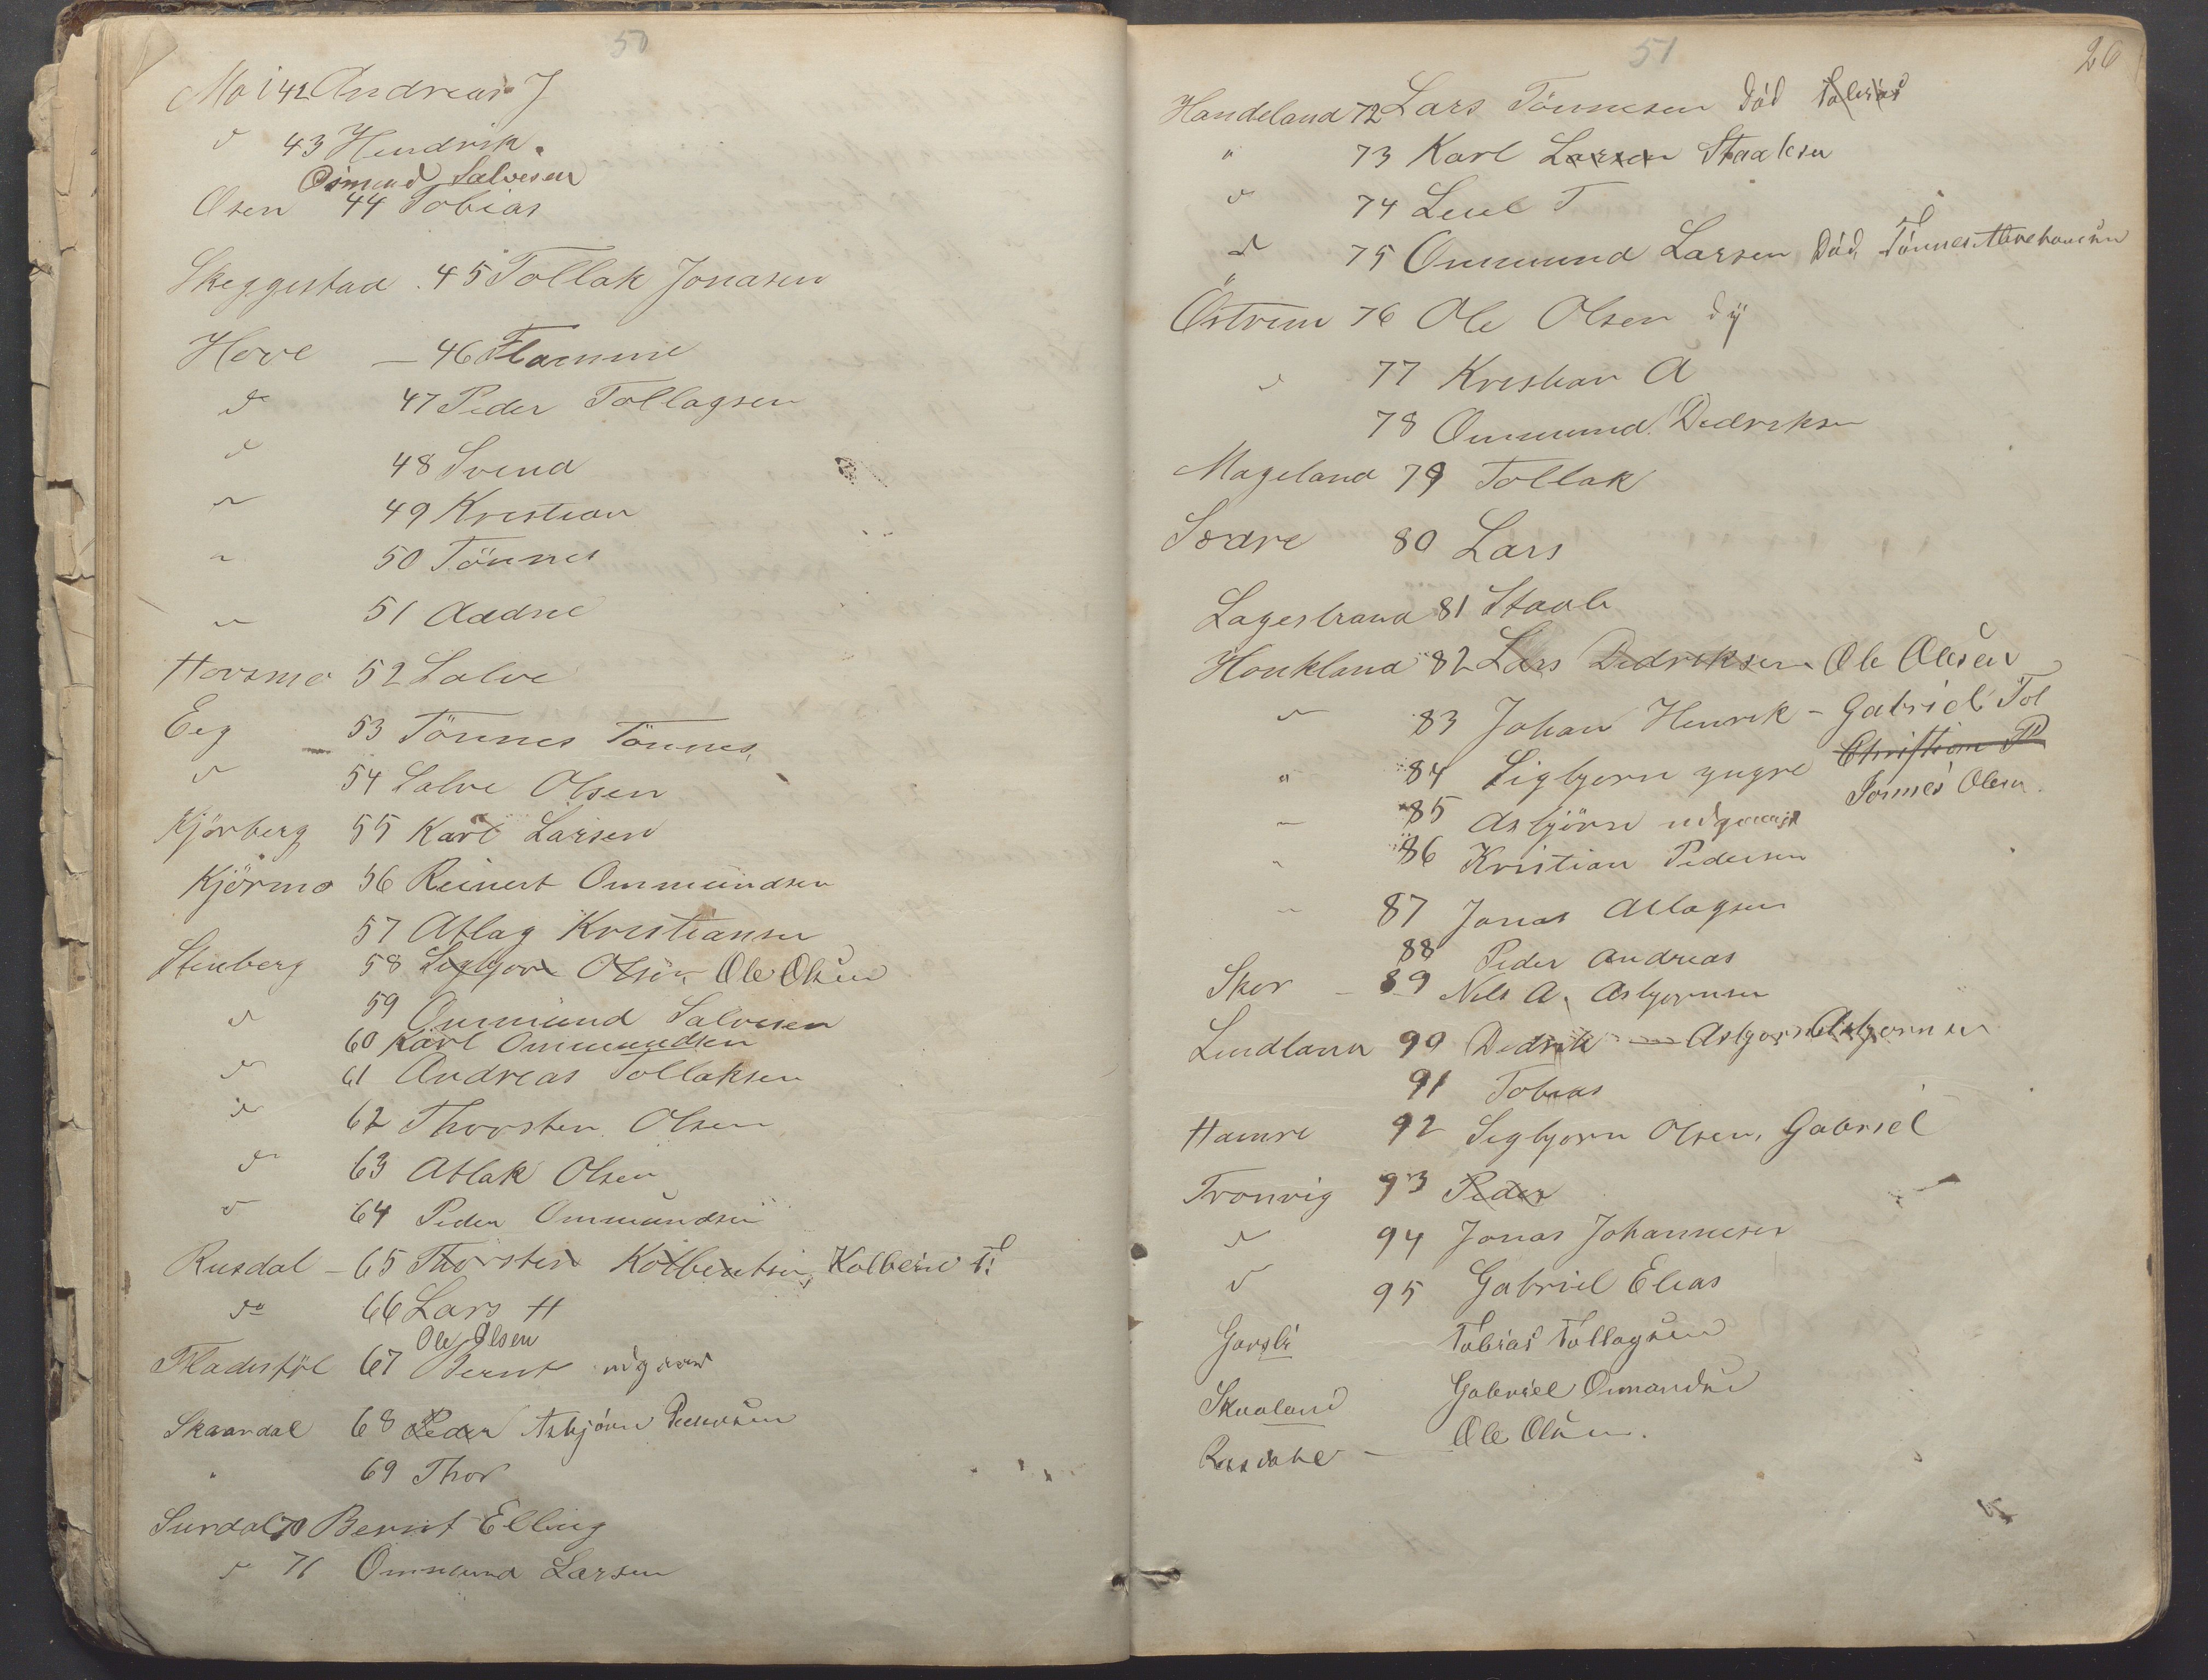 50
Moi 42 Andreas J
d 43 Hendrik
Osmund Salvesen
Osen 44 Tobias
Skeggestad 45 Tollak Jonasen
Hove — 46 Flamme
d 47 Peder Tollagsen
d 48 Svend
" 49 Kristian
" 50 Tönnes
" 51 Aadne
Hovsmo 52 Salve
Eeg 53 Tönnes Tönnes
d 54 Salve Olsen
Kjörberg 55 Karl Larsen
Kjörmo 56 Reinert Ommundsen
57 Atlag Kristiansen
Stenberg 58 Sigbjorn Olsen Ole Olsen
d 59 Ommund Salvesen
60 Karl Ommundsen
d 61 Andreas Tollaksen
d 62 Thorsten Olsen
d 63 Atlak Olsen
d 64 Peder Ommundsen
Rusdal — 65 Thorsten Kolbentsen, Kolbein T.
do 66 Lars H
Ole Olsen
67 Bernt
Skaardal 68 Peder Asbjörn Pedersen
" 69 Thor
Surdal 70 Bernt Elling
d 71 Ommund Larsen
51
26
Handeland 72 Lars Tönnesen död Tobias
" 73 Karl Larsen Staalesen
d 74 Leul T
d 75 Ommund Larsen Död, Tönnes
Östrem 76 Ole Olsen
d 77 Kristian A
78 Ommund Dedriksen
Mageland 79 Tollak
Sodre 80 Lars
Lagestrand 81 Staale
Honkland 82 Lars Dedriksen Ole Olesen
" 83 Johan Henrik – Gabriel Tol
" 84 Sigbjorn yngre Christian P
Tonnes Olsen
" 85 Asbjörn
" 86 Kristian Pedersen
" 87 Jonas Atlagsen
88 Peder Andreas
Skor — 89 Nils A. Asbjornsen
Lindland 90 Dedrik — Asbjorn Asbjornsen
91 Tobias
Hamre 92 Sigbjorn Olsen, Gabriel
Tronvig 93 Peder
d 94 Jonas Johannesen
d 95 Gabriel Elias
Gavsli Tobias Tollagsen
Skaaland Gabriel
Rusdahl — Ole Olsen.